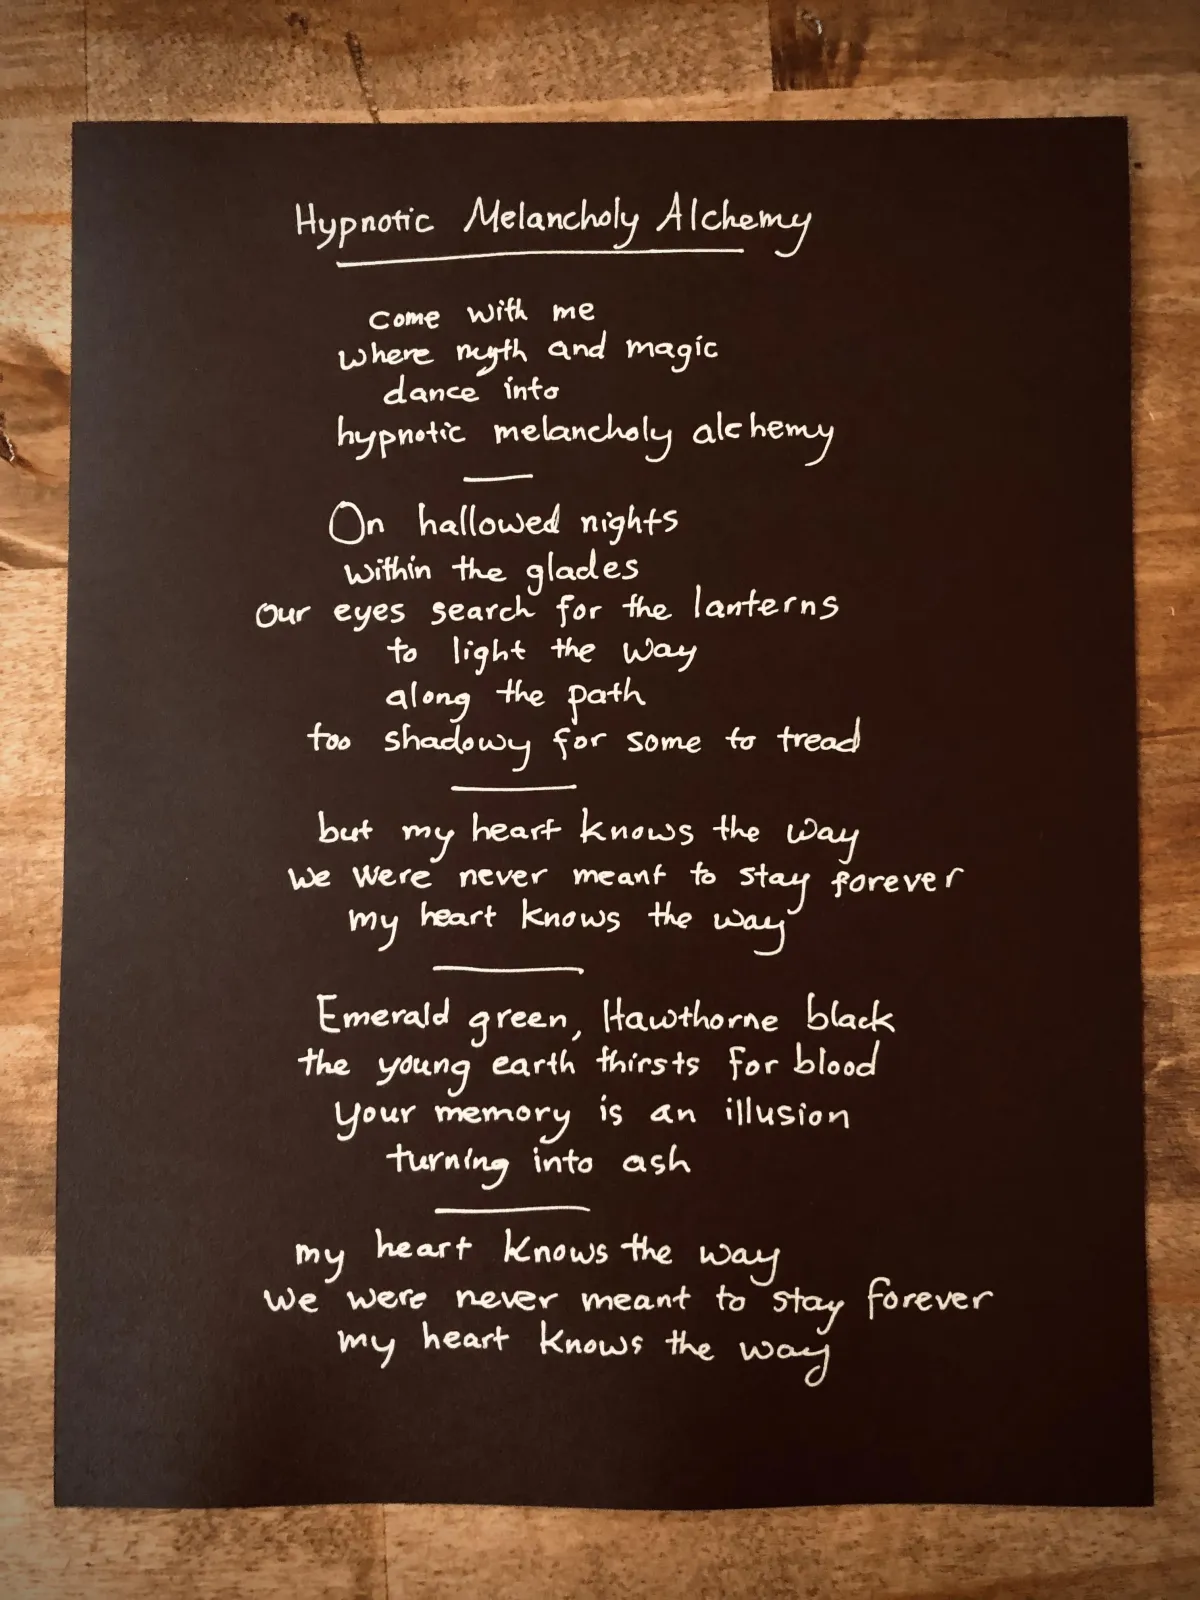 Hypnotic Melancholy Alchemy
come with me
where myth and magic
dance into
hypnotic melancholy alchemy
On hallowed nights
within the glades
our eyes search for the lanterns
to light the way
along the path
too shadowy for some to tread
but my heart knows the way
we were never meant to stay forever
my heart knows the way
Emerald green, Hawthorne black
the young earth thirsts for blood
your memory is an illusion
turning into ash
my heart knows the way
we were never meant to stay forever
my heart knows the way